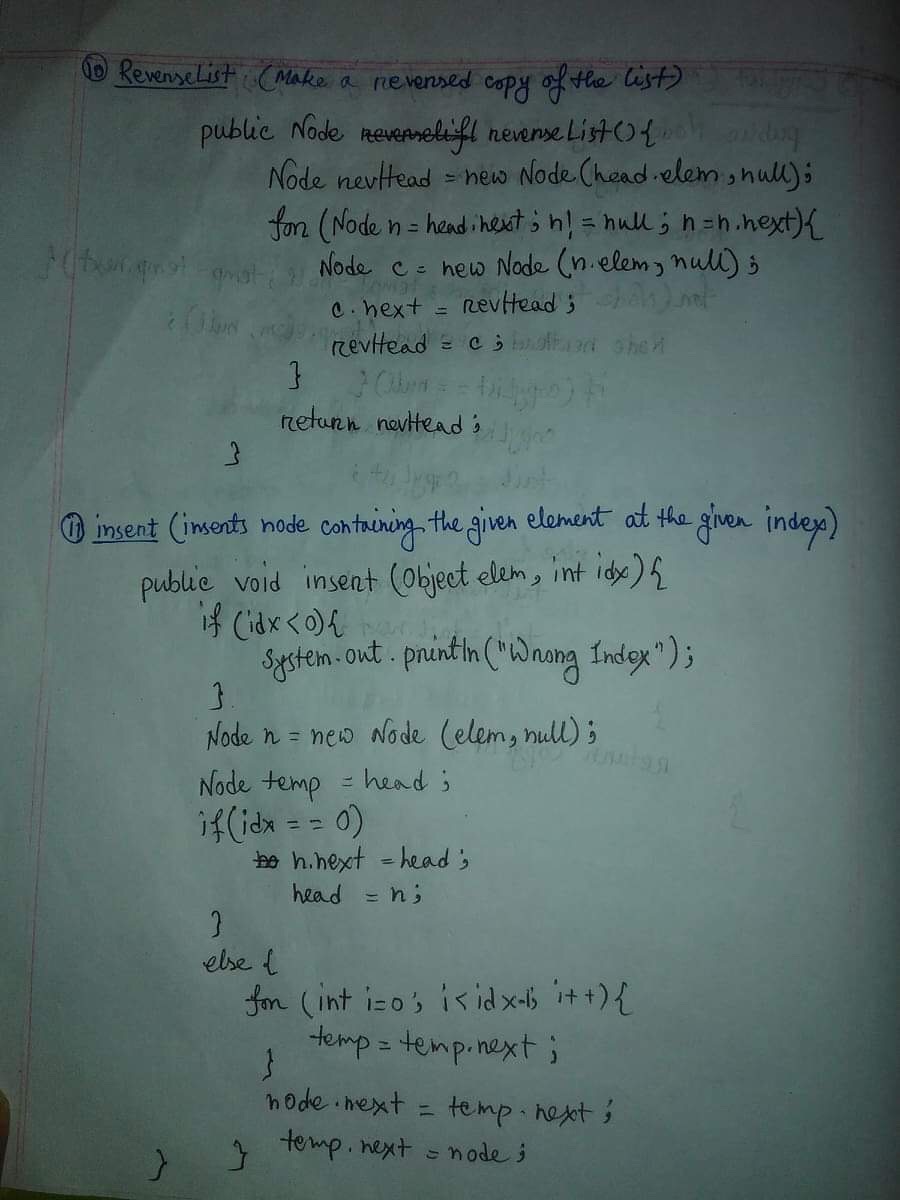 ⑩ ReverseList: (Make a reversed copy of the list)
public Node reverseList() {
Node revHead = new Node (head.elem, null);
for (Node n = head.next; n! = null; n = n.next){
Node c = new Node (n.elem, null);
c.next = revHead;
revHead = c;
}
return revHead;
}
⑪ insert (inserts node containing the given element at the given index)
public void insert (Object elem, int idx) {
if (idx<0){
System.out.println("Wrong Index");
}
Node n = new Node (elem, null);
Node temp = head;
if(idx == 0)
n.next = head;
head = n;
}
else {
for (int i=0; i<idx-1; i++){
temp = temp.next;
}
node.next = temp.next;
temp.next = node;
} }